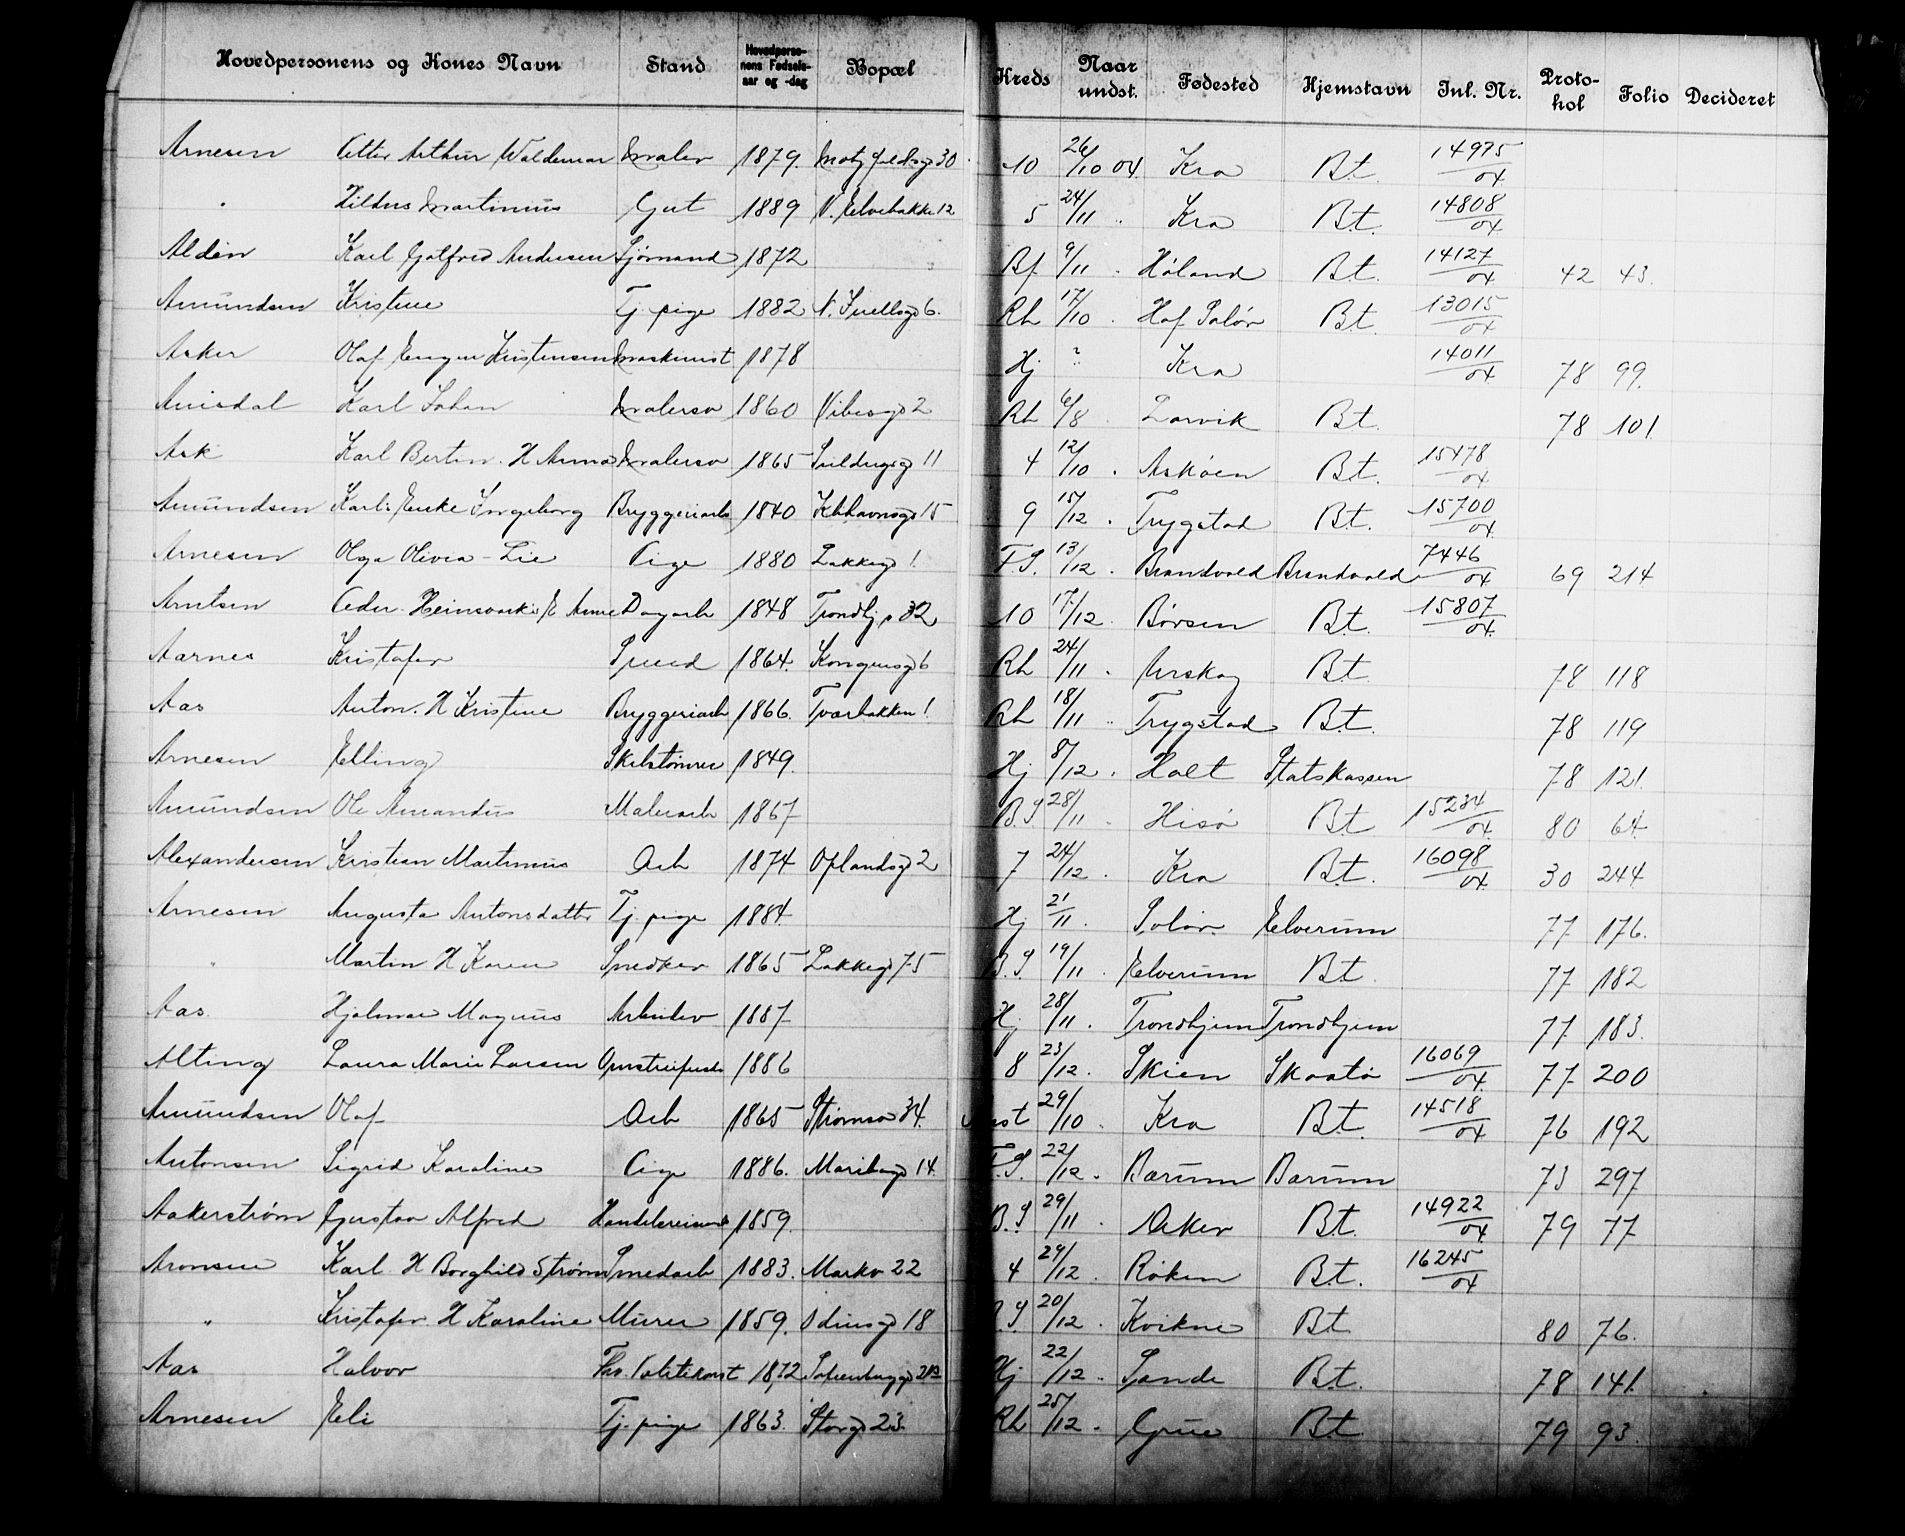 Hovedpersonens og Kones Navn Stand Hovedpersonens Fødselsaar og -dag Bopæl Kreds Naar undst. Fødested Hjemstavn Jnl. Nr. Protokol Folio Decideret
Arnesen Arthur Waldemar Maler 1879. 30 10 26/10 04. Kra Bt. 14975/04
" Martinius Gut 1889 N. Elvebakke 12 5 24/11 . Kra Bt. 14808/04
Aldén Karl Gotfred Andersen Sjømand 1872 Bf 9/11 . Høland Bt. 14127/04 42 43.
Amundsen Kristine Tj. pige 1882 N. 6. Rh 17/10 . Hof Solør Bt. 13015/04
Asker Olaf Eugen Kristensen Maskinist 1878 Hj ? Kra 14011/04 78 99.
Karl Johan Malersv 1860 Vibesgd 2 Rh 6/8 Larvik Bt. 78 101.
Ask Karl Bertin. H Anna Malersv 1865 11 4 12/10 . Askøen Bt. 15478/04
Amundsen Ingeborg Bryggeriarb 1840 Kbhavnsgd 15 9 15/12 . Trygstad Bt. 15700/04
Arnesen Olga Olivia - Lie Pige 1880 Lakkegd 1. F.S. 13/12 . Brandvold Brandvold 7446/04 69 214
Arntsen Peder E Anne Dagarb 1848 Trondhj. 32 10 17/12 . Børsen Bt. 15807/04
Aarnes Kristofer Smed 1864. Kongensgd 6 Rh 24/11 . Urskog Bt. 78 118
Aas Anton. H Kristine Bryggeriarb 1866. Tværbakken 1. Rh 18/11 . Trygstad Bt. 78 119
Arnesen Elling Skibstømrer 1849. Hj 8/12 . Holt Statskassen 78 121.
Amundsen Ole Amandus Malerarb 1867 B.S 28/11 . Hisø Bt. 15234/04 80 64
Alexandersen Kristian Martinius Arb 1874 Oplandsgd 2 7 24/12 . Kra Bt. 16098/04 30 244
Arnesen Augusta Antonsdatter Tj. pige 1884. Hj 21/11 . Solør Elverum 77 176.
" Martin H Karen Snedker 1865 Lakkegd 75 B.S. 19/11 . Elverum Bt. 77 182
Aas. Hjalmar Magnus Arbeider 1887 Hj. 28/11 . Trondhjem Trondhjem 77 183.
Alting Laura Marie Larsen 1886 8 23/12 . Skien Skaatø 16069/04 77 200
Amundsen Olaf Arb 1865 Strømsv 34. 29/10 . Kra Bt. 14518/04 76 192
Antonsen Sigrid Karoline Pige 1886. Maribogd 14. F.S. 22/12 . Bærum Bærum 73 297
Aakerstrøm Gustav Alfred Handelsreisende 1859. B.S 29/11 . Aker Bt. 14922/04 79 77
Aronsen Karl H Borghild Strøm Smedarb 1883. Markv 22 4 29/12 . Røken Bt. 16245/04
" Kristofer H Karoline Murer 1859. Odinsgd 18 B.S 20/12 . Kvikne Bt. 80 76.
Aas Halvor Fhv. Politikonst 1872 Hj 22/12 . Sande Bt. 78 141.
Arnesen Eli Tj. pige 1863. Storgd 23. Rh 25/12 . Grue Bt 79 93.